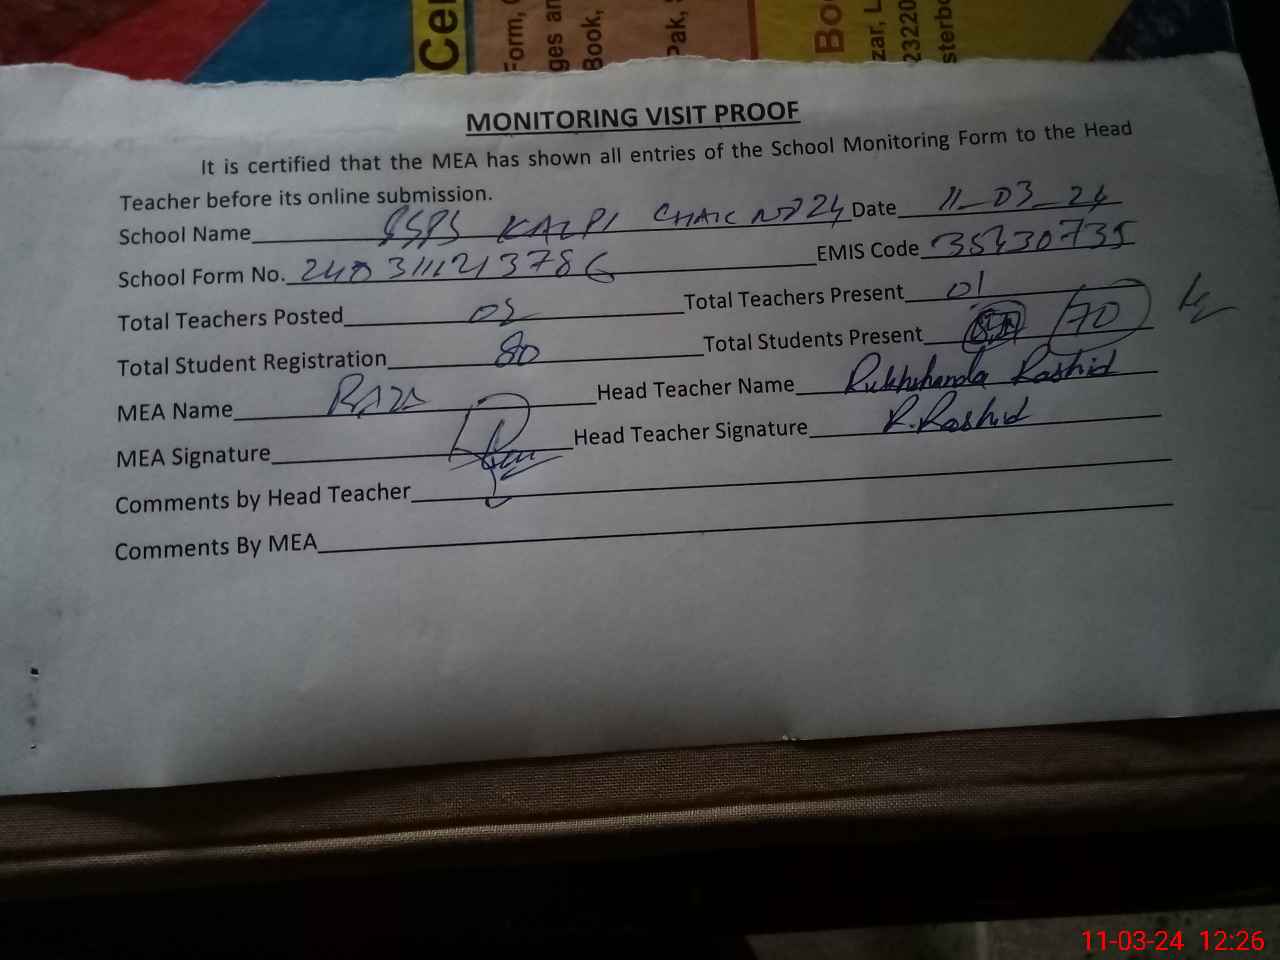 Cer
Form, 
ges an
Book,
Pak,
Bo
zar, L
23220
sterbo
MONITORING VISIT PROOF
It is certified that the MEA has shown all entries of the School Monitoring Form to the Head
Teacher before its online submission.
School Name KALPI CHAK NO 24 Date 11-03-24
School Form No. EMIS Code 35430735
Total Teachers Posted Total Teachers Present 01
Total Student Registration 80 Total Students Present 70
MEA Name RAZA Head Teacher Name Rukhshanda Rashid
MEA Signature Head Teacher Signature R.Rashid
Comments by Head Teacher
Comments By MEA
11-03-24 12:26